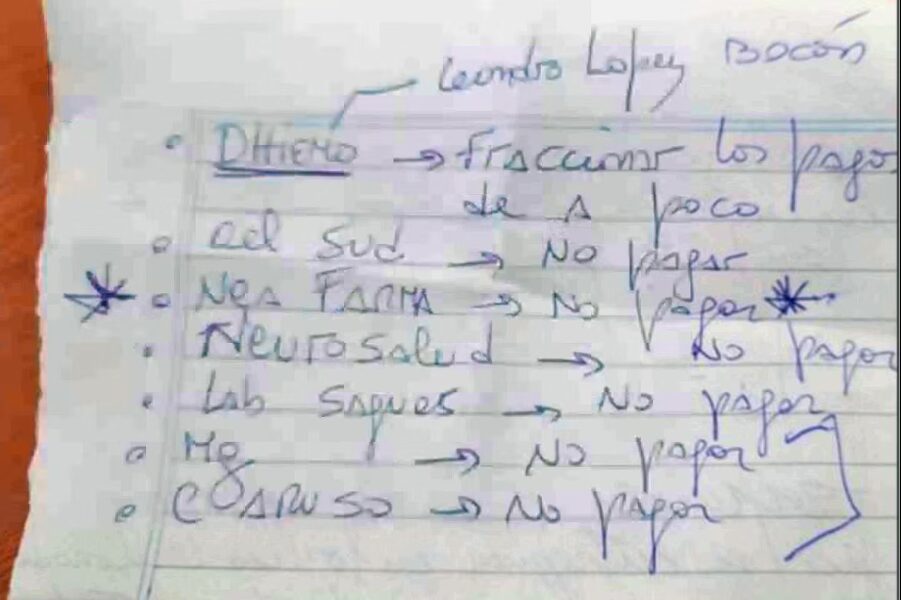 Leandro Lopez Bocón
• DHIEMO → Fraccionar los pagos
de A poco
• cel Sud → No pagar
* • NEA FARMA → No pagar *
• Neurosalud → No pagar
• Lab Sagues → No pagar
• Mg → No pagar
• CARUSO → No pagar